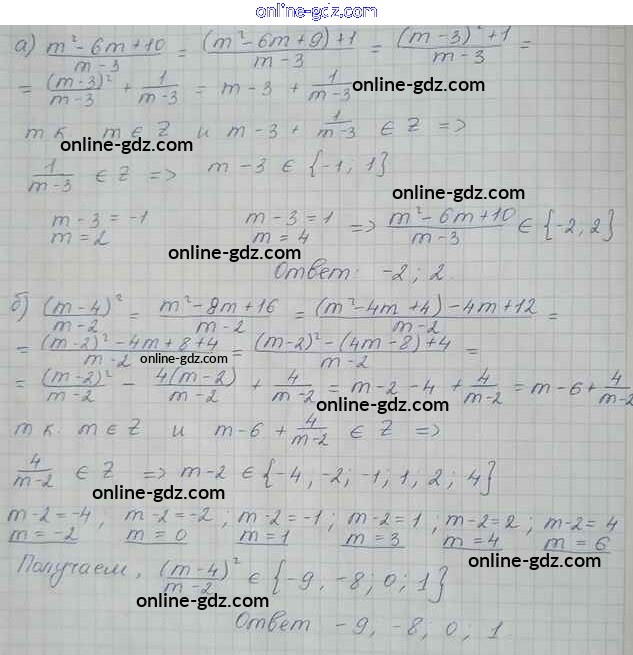 online-gdz.com
а) (m²-6m+10)/(m-3) = ((m²-6m+9)+1)/(m-3) = ((m-3)²+1)/(m-3) =
= (m-3)²/(m-3) + 1/(m-3) = m-3 + 1/(m-3) online-gdz.com
т к. m ∈ Z и m-3 + 1/(m-3) ∈ Z =>
online-gdz.com
1/(m-3) ∈ Z => m-3 ∈ {-1; 1}
online-gdz.com
m-3=-1 m-3=1 => (m²-6m+10)/(m-3) ∈ {-2, 2}
m=2 m=4
online-gdz.com
Ответ: -2; 2
б) (m-4)²/(m-2) = (m²-8m+16)/(m-2) = ((m²-4m+4)-4m+12)/(m-2) =
= ((m-2)²-4m+8+4)/(m-2) = ((m-2)²-(4m-8)+4)/(m-2) =
online-gdz.com
= (m-2)²/(m-2) - 4(m-2)/(m-2) + 4/(m-2) = m-2-4 + 4/(m-2) = m-6+ 4/(m-2)
online-gdz.com
т к. m∈Z и m-6 + 4/(m-2) ∈ Z =>
4/(m-2) ∈ Z => m-2 ∈ {-4, -2; -1; 1, 2; 4}
online-gdz.com
m-2=-4, m-2=-2; m-2=-1; m-2=1; m-2=2; m-2=4
m=-2 m=0 m=1 m=3 m=4 m=6
online-gdz.com
Получаем, (m-4)²/(m-2) ∈ {-9, -8; 0; 1}
online-gdz.com
Ответ -9, -8; 0; 1
online-gdz.com